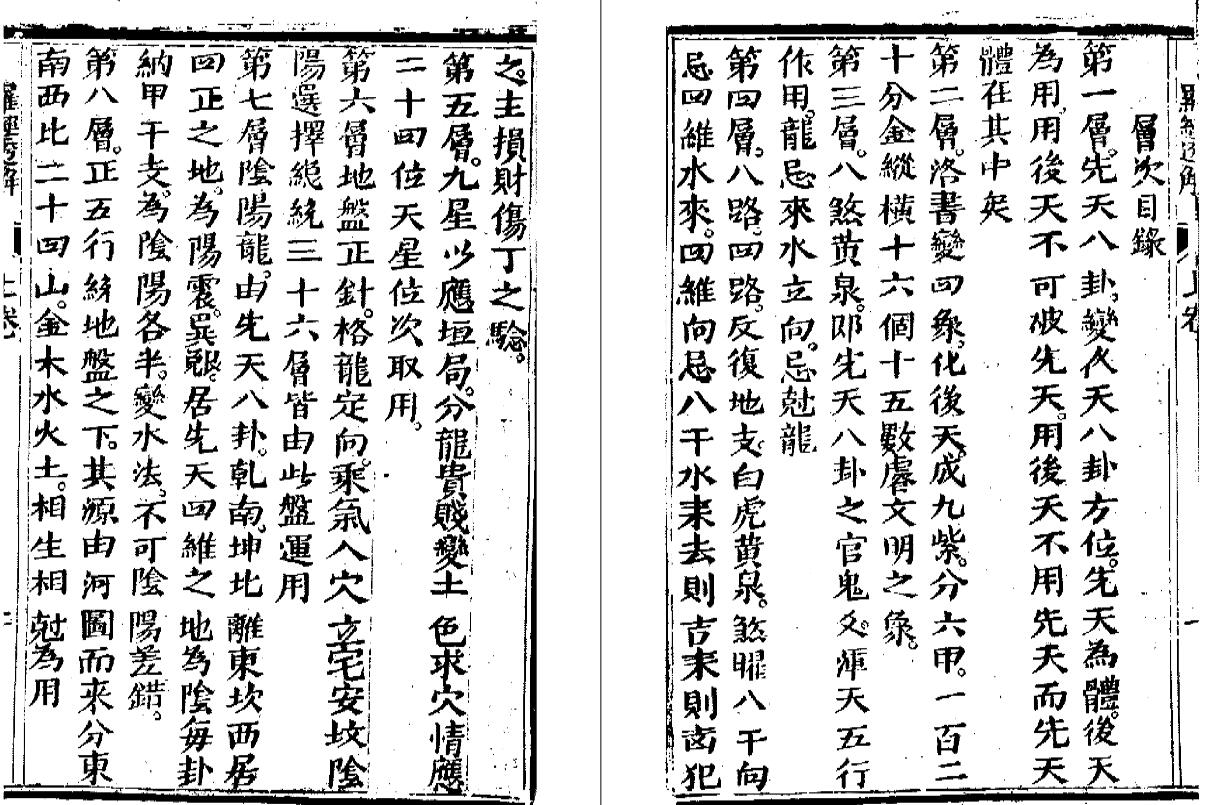 層次目錄
第一層。先天八卦。變後天八卦方位。先天為體。後天
為用。用後天不可破先天。用後天不用先天而先天
體在其中矣
第二層。洛書變四象。化後天。成九紫。分六甲。一百二
十分金縱橫十六個十五數虛文明之象。
第三層。八煞黃泉。即先天八卦之官鬼爻。渾天五行
作用。龍忌來水立向。忌尅龍
第四層。八路四路。反復地支。白虎黃泉。煞曜八干向
忌四維水來。四維向忌八干水來去則吉來則凶犯
之。主損財傷丁之驗。
第五層。九星以應垣局。分龍貴賤變土色求穴情應
二十四位天星位次取用。
第六層地盤正針。格龍定向。乘氣入穴立宅安墳陰
陽選擇總統三十六層皆由此盤運用
第七層陰陽龍。由先天八卦。乾南。坤北離東坎西居
四正之地。為陽震。巽艮。居先天四維之地為陰每卦
納甲干支。為陰陽各半。變水法。不可陰陽差錯。
第八層。正五行綈地盤之下。其源由河圖而來分東
南西北二十四山。金木水火土。相生相尅為用
羅經透解
上卷
一
上卷